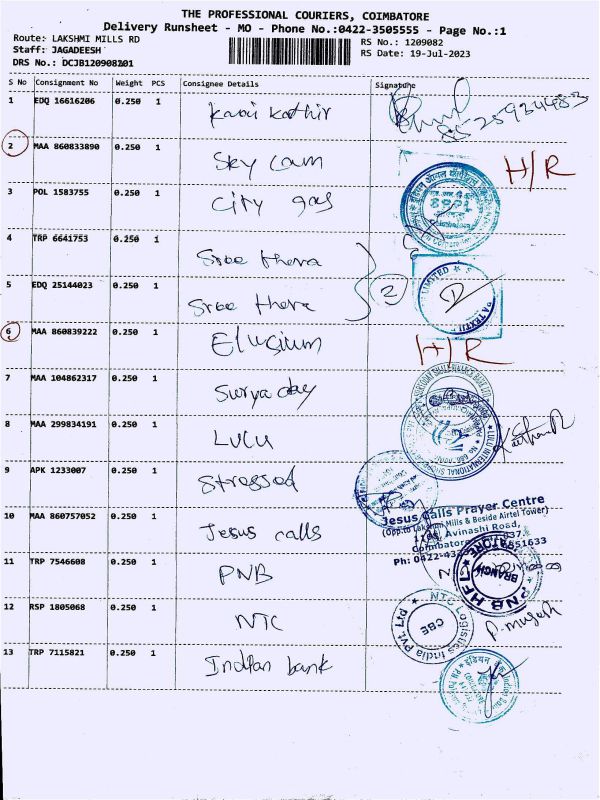 THE PROFESSIONAL COURIERS, COIMBATORE
Delivery Runsheet - MO - Phone No.:0422-3505555 - Page No.:1
Route: LAKSHMI MILLS RD
Staff: JAGADEESH
DRS No.: DCJB120908201
RS No.: 1209082
RS Date: 19-Jul-2023
S No Consignment No Weight PCS Consignee Details Signature
1 EDQ 16616206 0.250 1 Kavi Kathir
2 MAA 860833890 0.250 1 Sky cam H/R
3 POL 1583755 0.250 1 City gas
4 TRP 6641753 0.250 1 Sree thera
5 EDQ 25144023 0.250 1 Sree thera 2
LIMITED
6 MAA 860839222 0.250 1 Elusium H/R
7 MAA 104862317 0.250 1 Surya day
8 MAA 299834191 0.250 1 LULU
LULU INTERNATIONAL
9 APK 1233007 0.250 1 Stressed
10 MAA 860757052 0.250 1 Jesus calls
Jesus Calls Prayer Centre
(Opp.to Lakshmi Mills & Beside Airtel Tower)
Avinashi Road,
Coimbatore
Ph: 0422-
11 TRP 7546608 0.250 1 PNB
PNB HFL
BRANCH
12 RSP 1805068 0.250 1 NTC
NTC Logistics India Pvt. Ltd
CBE
13 TRP 7115821 0.250 1 Indian bank